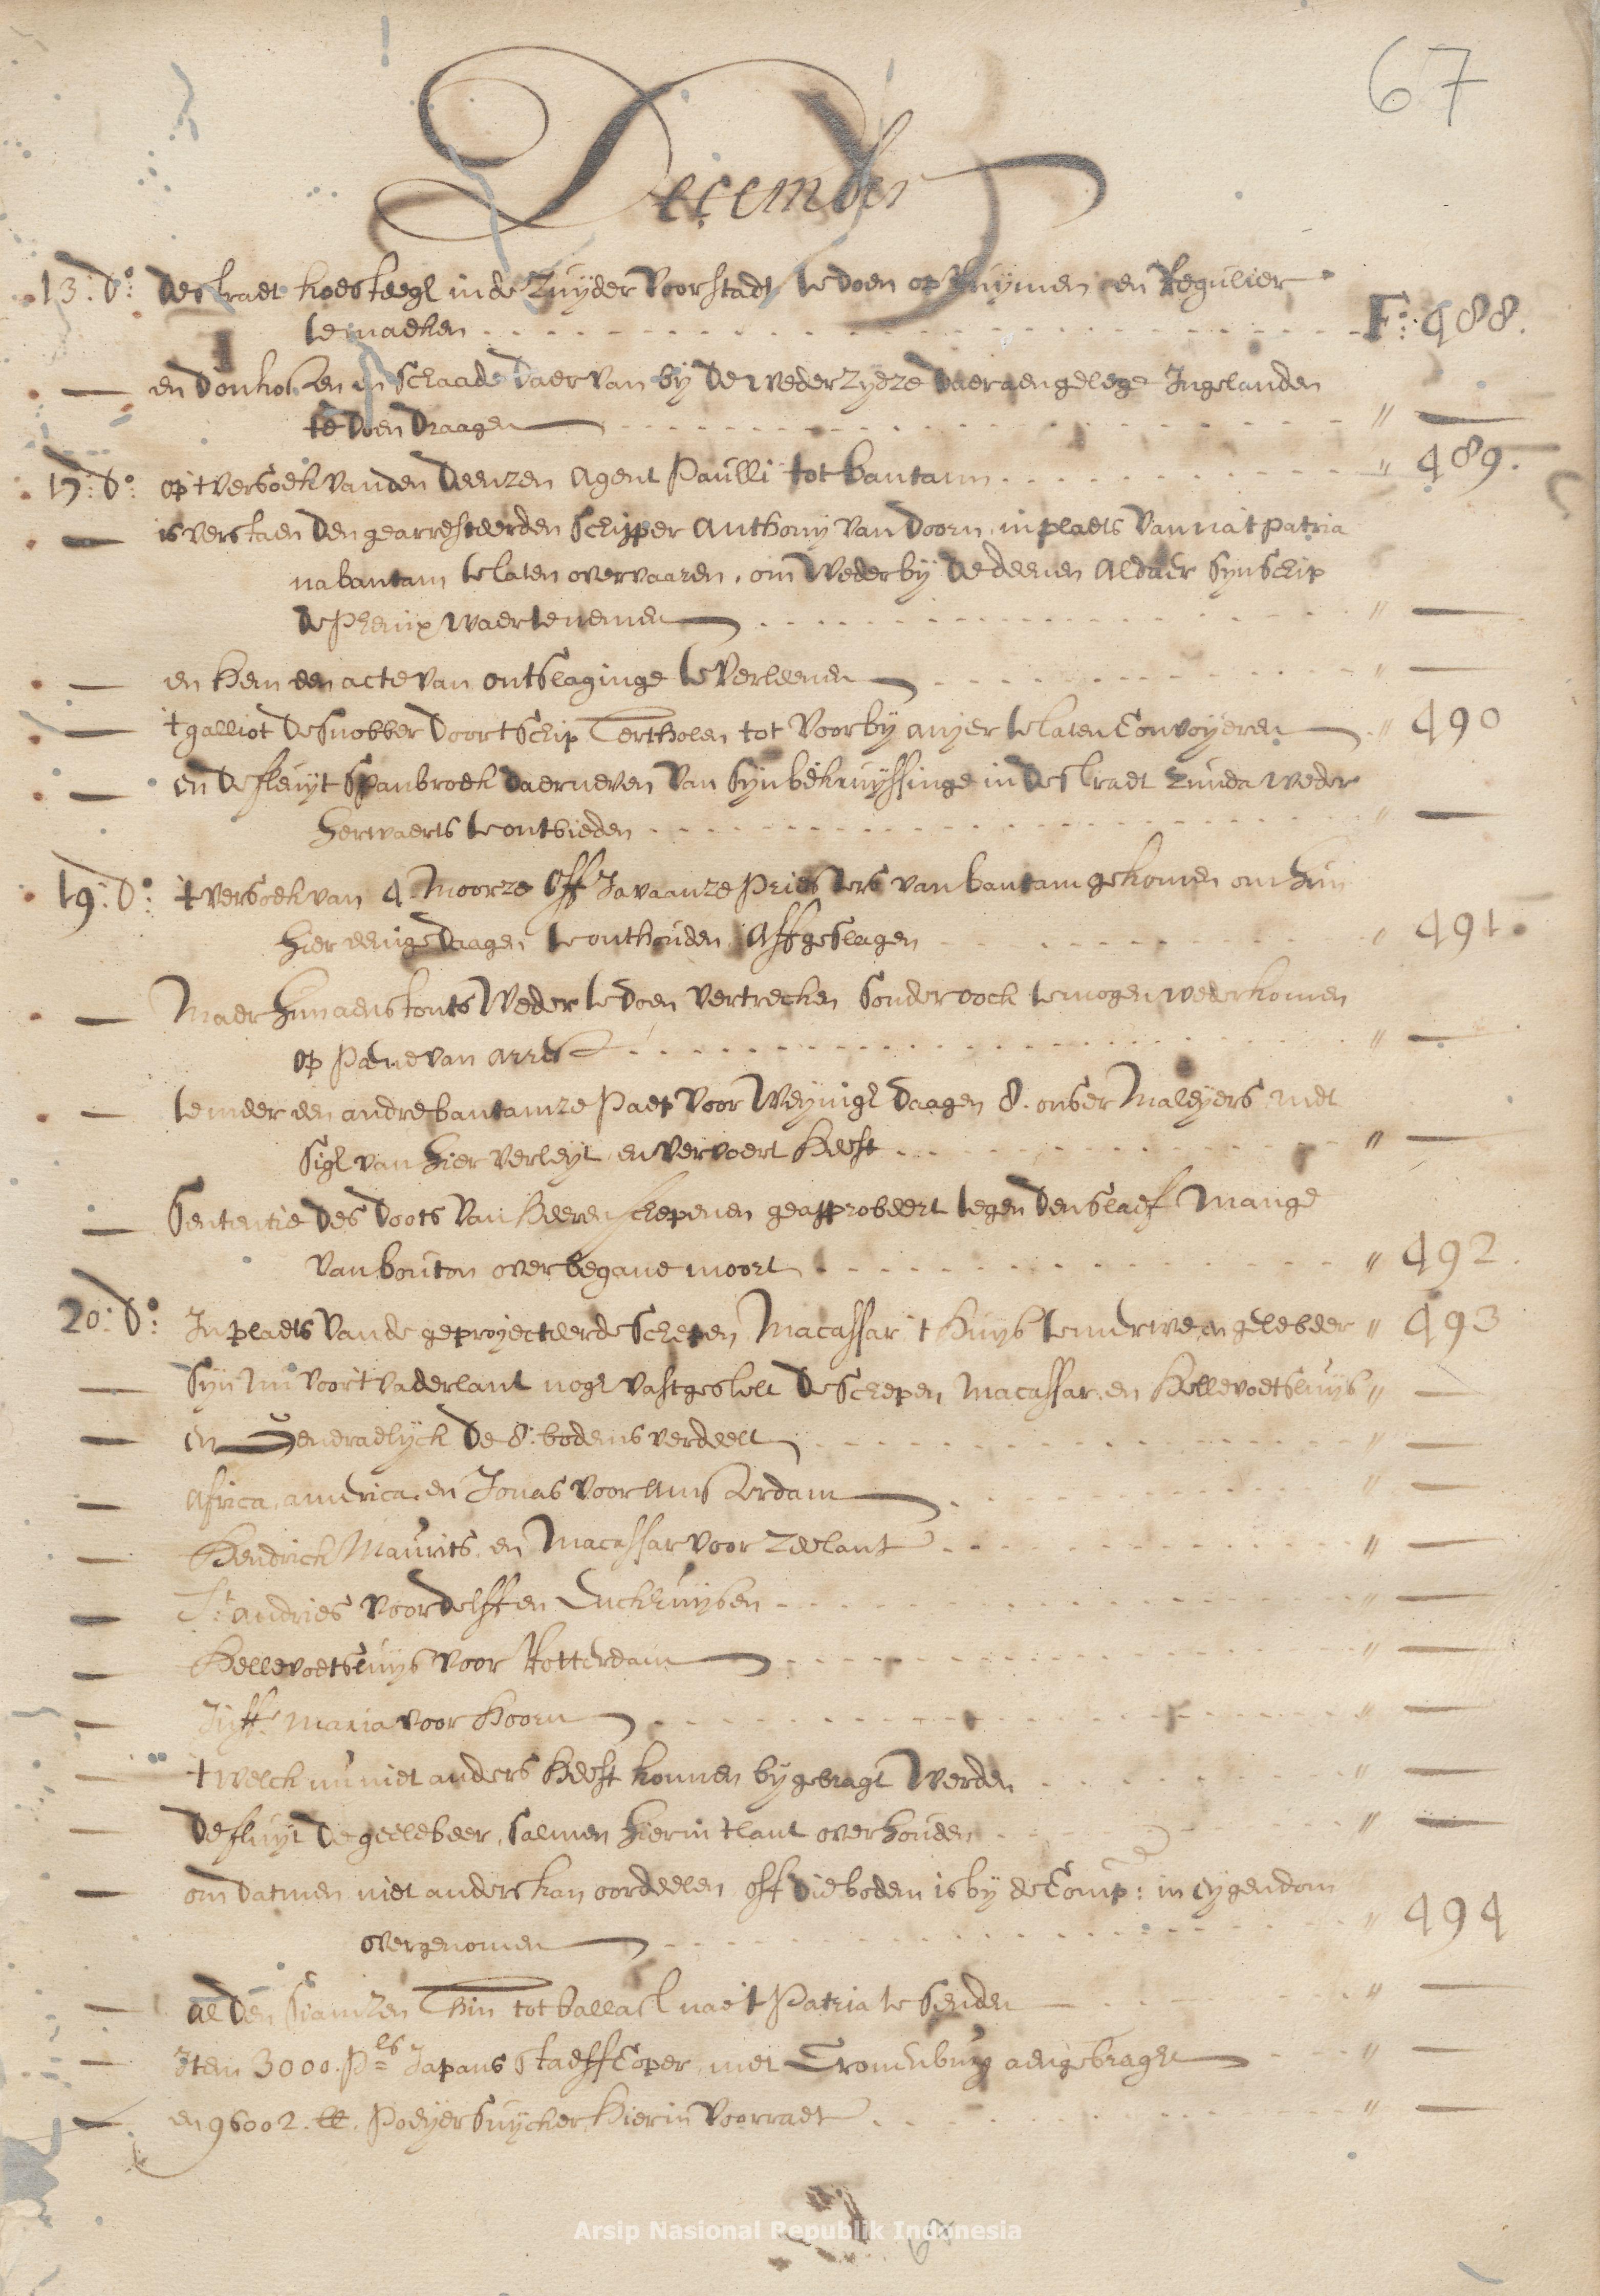 67
December
13: do: de straet hoesteegh in de Zuyder Voorstadt te doen op Ruymen en Regulier
te maeken F:o 488.
— en d'onkosten en schaade daer van by de weder zydze daer aengelege Ingelanden
te doen draagen " —
17: do: op 't versoek van den Deenzen Agent Paulli tot bantam " 489.
— is verstaen den gearresteerden schipper Anthony van Doorn in plaets van na 't patria
na bantam te laten overvaaren, om weder by de deenen aldaer syn schip
de Phenix waer te nemen " —
— en hem een acte van ontslaginge te verleenen " —
— 't galliot de Snobber door 't schip Tertholen tot voorby anjer te laten Convoyeren " 490
— en de fleuyt Spanbroek daerneven van syn bekruyssinge in de straet Zunda weder
herwaerts te ontbieden " —
19: do: 't versoek van 4 Moorze off Javaanze Priesters van bantam gekomen om hun
hier eenige daagen te onthouden, affgeslagen " 491.
— Maer hun aenstonts weder te doen vertrecken sonder oock te mogen wederkomen
op pæne van arrest " —
— temeer een andre bantamze Paep voor weynigh daagen 8. onser Maleyers met
sigh van hier verleyt en vervoert heeft " —
— Sententie des doots van heeren schepenen geapprobeert tegen den slaef Mange
van bouton over begane moort " 492.
20: do: In plaets van de geproyecteerde schepen, Macassar 't huys te merwe, en gelebeer " 493
— syn nu voor 't vaderlant nogh vastgestelt de schepen Macassar en Hellevoetsluys " —
— en Generaelyck de 8: bodems verdeelt " —
— Africa, america, en Jonas voor Amsterdam " —
— Hendrick Maurits en Macassar voor Zeelant " —
— St. andries voor delff en Enckhuysen " —
— Hellevoetsluys voor Rotterdam " —
— Juffr. Maria voor hoorn " —
— 't welck nu niet anders heeft konnen bygebragt werden " —
— de fluyt de geelebeer, salmen hier in 't lant overhouden " —
— om datmen niet anders kan oordeelen, off die bodem is by de Comp: in eygendom
overgenomen " 494
— al den Siamzen Thin tot ballast nae 't Patria te senden " —
— Item 3000. P:ls Japans staeffcoper, met Cronenburg aengebraght " —
— en 96002. lb. Poeyersuycker hier in voorraet " —
Arsip Nasional Republik Indonesia